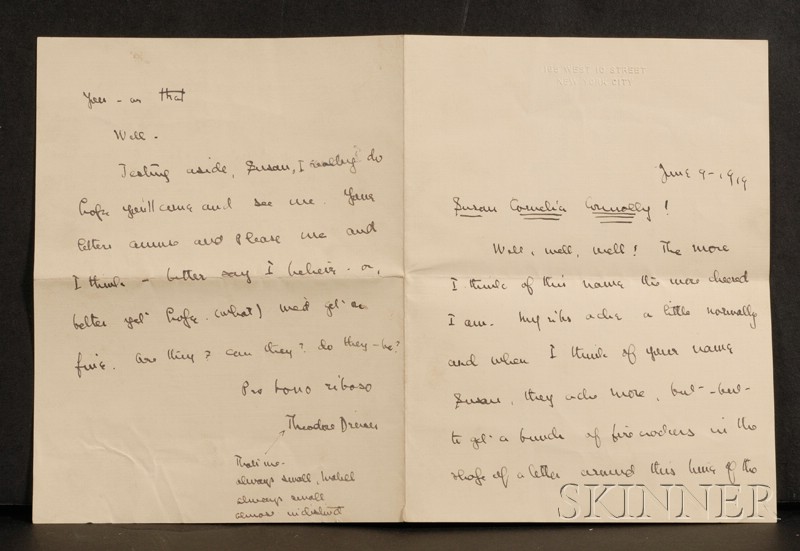 WEST 10 STREET
NEW YORK CITY
June 9-1919
Susan Cornelia Connolly!
Well, well, well! The more
I think of this name the more cheered
I am. My ribs ache a little normally
and when I think of your name
Susan, they ache more, but--but-
to get a bunch of firecrackers in the
shape of a letter around this time of the
year - as that
Well-
Testing aside, Susan, I really do
hope you'll come and see me. Your
letters amuse and please me and
I think - better say I believe - or,
better yet hope. (what) we'd get on
fine. Are they? can they? do they-be?
Pro bono riboso
Theodore Dreiser
That's me-
always small,
always small
almost indistinct
SKINNER